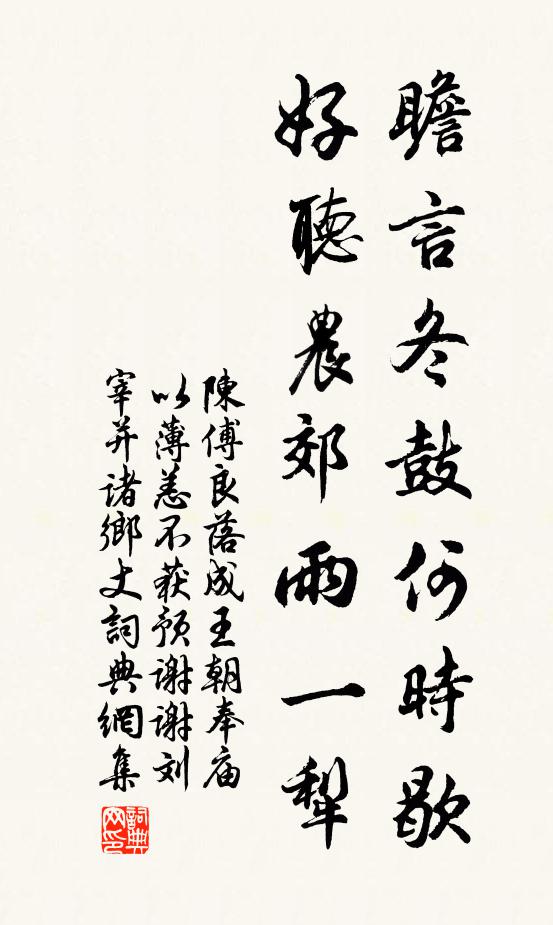 瞻言冬鼓何時歇
好聽農郊雨一犁
陳傅良落成王朝奉庙
以薄恙不获预謝謝刘
宰并诸鄉丈詞典網集
詞典网印